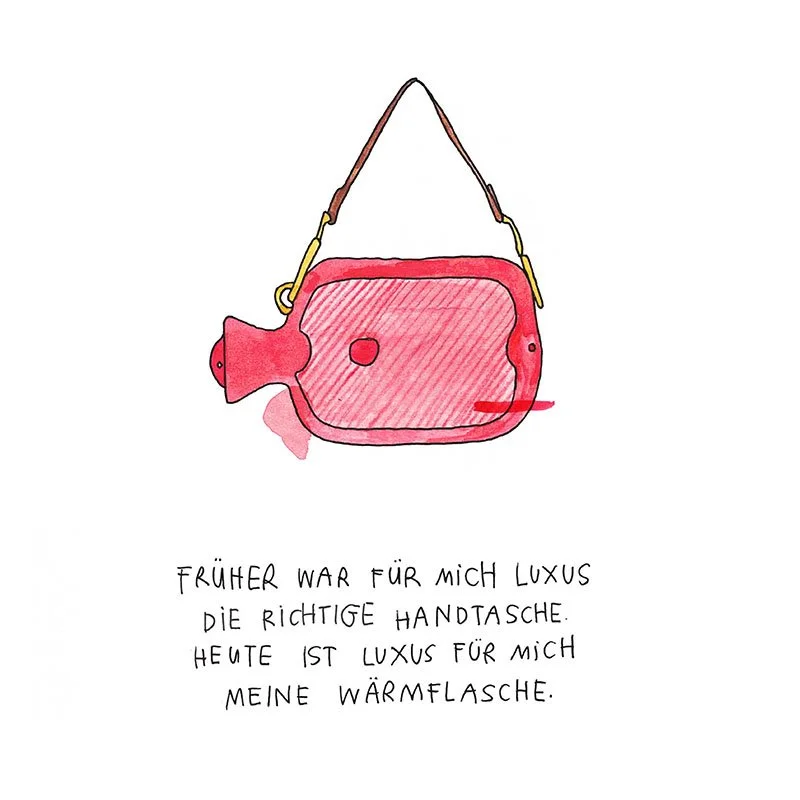 FRÜHER WAR FÜR MICH LUXUS
DIE RICHTIGE HANDTASCHE.
HEUTE IST LUXUS FÜR MICH
MEINE WÄRMFLASCHE.